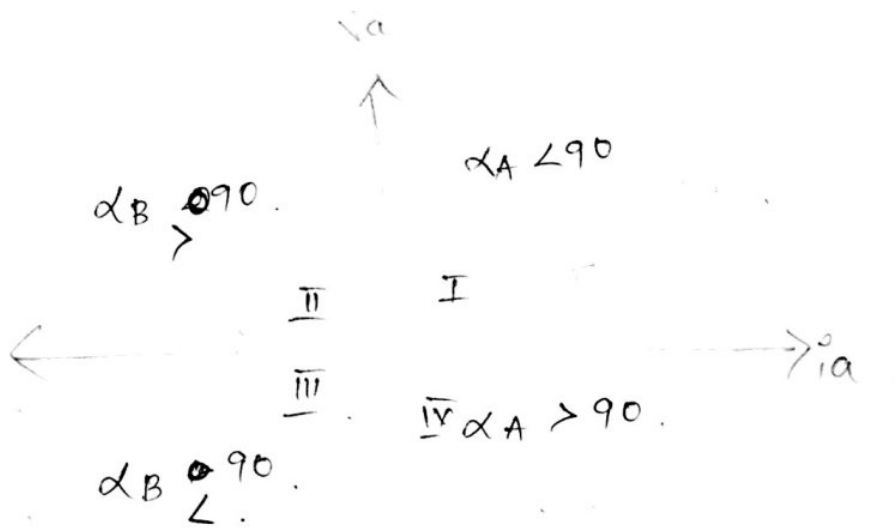 Va
α_A < 90
α_B > 90.
II I
ia
III.
IV α_A > 90.
α_B < 90.